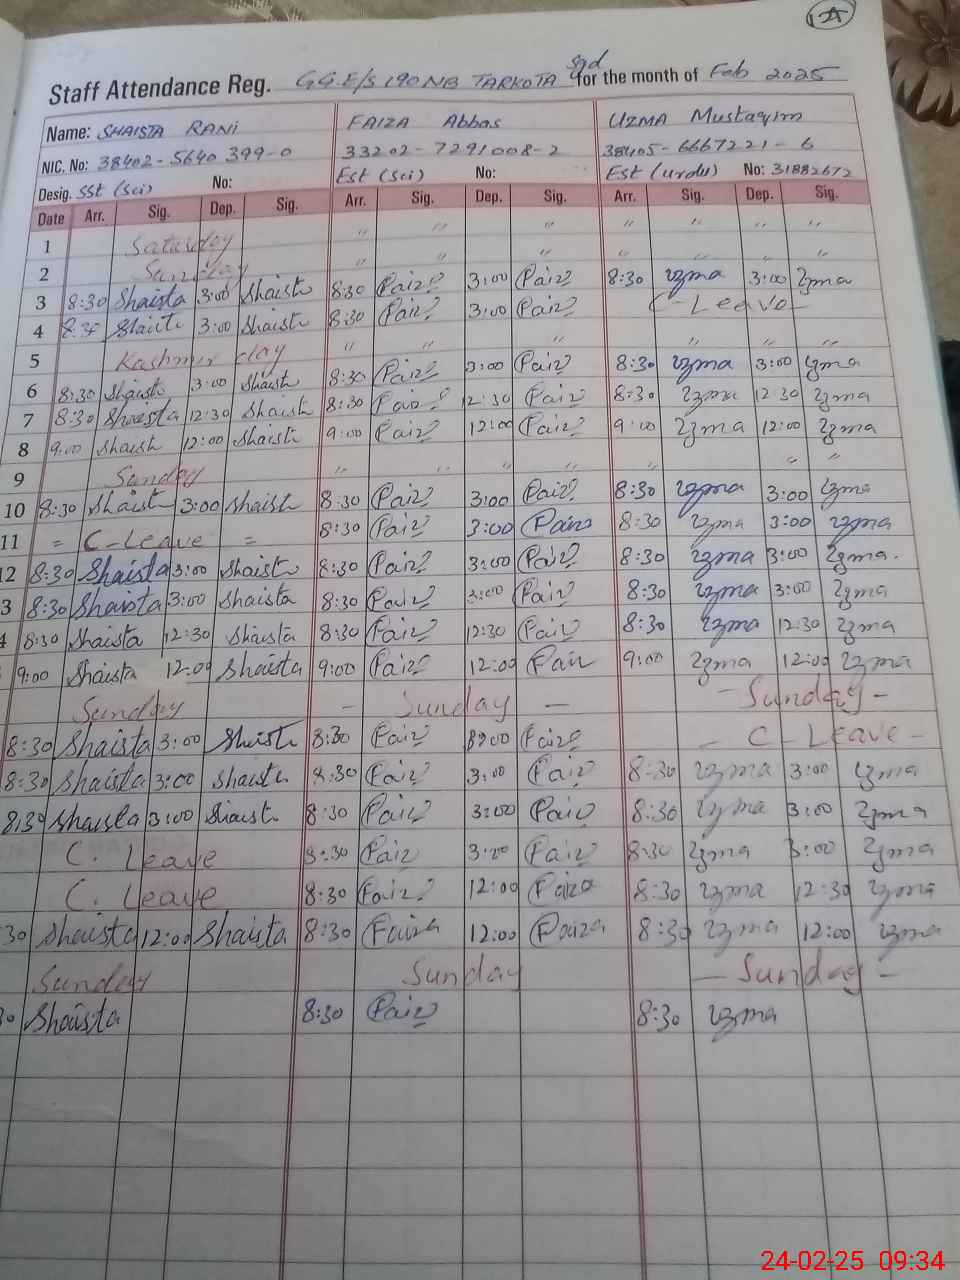 Staff Attendance Reg. G.G.E/S 190 NB TARKOTA Sgd for the month of Feb 2025
Name: SHAISTA RANI FAIZA Abbas UZMA Mustaqim
NIC. No: 38402-5640399-0 33202-7291008-2 38405-6667221-6
Desig. SST (Sci) No: Est (Sci) No: Est (Urdu) No: 31882672
Date Arr. Sig. Dep. Sig. Arr. Sig. Dep. Sig. Arr. Sig. Dep. Sig.
1 Saturday " " " " " "
2 Sunday " " " " " "
3 8:30 Shaista 3:00 Shaista 8:30 Faiz 3:00 Faiz 8:30 Uzma 3:00 Uzma
4 8:30 Shaista 3:00 Shaista 8:30 Faiz 3:00 Faiz C-Leave-
5 Kashmir day " " " " " "
6 8:30 Shaista 3:00 Shaista 8:30 Faiz 3:00 Faiz 8:30 Uzma 3:00 Uzma
7 8:30 Shaista 12:30 Shaista 8:30 Faiz 12:30 Faiz 8:30 Uzma 12:30 Uzma
8 9:00 Shaista 12:00 Shaista 9:00 Faiz 12:00 Faiz 9:00 Uzma 12:00 Uzma
9 Sunday " " " " " " "
10 8:30 Shaista 3:00 Shaista 8:30 Faiz 3:00 Faiz 8:30 Uzma 3:00 Uzma
11 = C-Leave = 8:30 Faiz 3:00 Faiz 8:30 Uzma 3:00 Uzma
12 8:30 Shaista 3:00 Shaista 8:30 Faiz 3:00 Faiz 8:30 Uzma 3:00 Uzma.
3 8:30 Shaista 3:00 Shaista 8:30 Faiz 3:00 Faiz 8:30 Uzma 3:00 Uzma
4 8:30 Shaista 12:30 Shaista 8:30 Faiz 12:30 Faiz 8:30 Uzma 12:30 Uzma
9:00 Shaista 12:00 Shaista 9:00 Faiz 12:00 Faiz 9:00 Uzma 12:00 Uzma
Sunday - Sunday - - Sunday -
8:30 Shaista 3:00 Shaista 8:30 Faiz 3:00 Faiz - C-Leave -
8:30 Shaista 3:00 Shaista 8:30 Faiz 3:00 Faiz 8:30 Uzma 3:00 Uzma
8:30 Shaista 3:00 Shaista 8:30 Faiz 3:00 Faiz 8:30 Uzma 3:00 Uzma
C. Leave 8:30 Faiz 3:00 Faiz 8:30 Uzma 3:00 Uzma
C. Leave 8:30 Faiz 12:00 Faiza 8:30 Uzma 12:30 Uzma
30 Shaista 12:00 Shaista 8:30 Faiza 12:00 Faiza 8:30 Uzma 12:00 Uzma
Sunday Sunday - Sunday -
30 Shaista 8:30 Faiz 8:30 Uzma
24-02-25 09:34